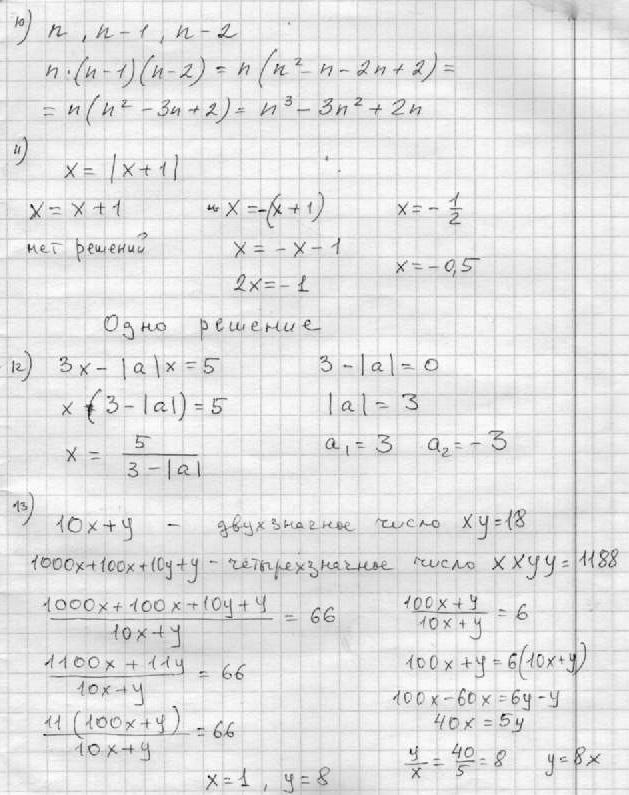 10) n, n-1, n-2
n·(n-1)(n-2) = n(n² - n - 2n + 2) =
= n(n² - 3n + 2) = n³ - 3n² + 2n
11)
x = |x+1|
x = x+1
нет решений
x = -(x+1)
x = -x-1
2x = -1
x = -1/2
x = -0,5
Одно решение
12) 3x - |a|x = 5
x(3 - |a|) = 5
x = 5/(3 - |a|)
3 - |a| = 0
|a| = 3
a₁ = 3 a₂ = -3
13)
10x+y - двухзначное число xy = 18
1000x+100x+10y+y - четырехзначное число xxyy = 1188
(1000x+100x+10y+y)/(10x+y) = 66
(1100x+11y)/(10x+y) = 66
(11(100x+y))/(10x+y) = 66
(100x+y)/(10x+y) = 6
100x+y = 6(10x+y)
100x-60x = 6y-y
40x = 5y
y/x = 40/5 = 8 y = 8x
x = 1, y = 8